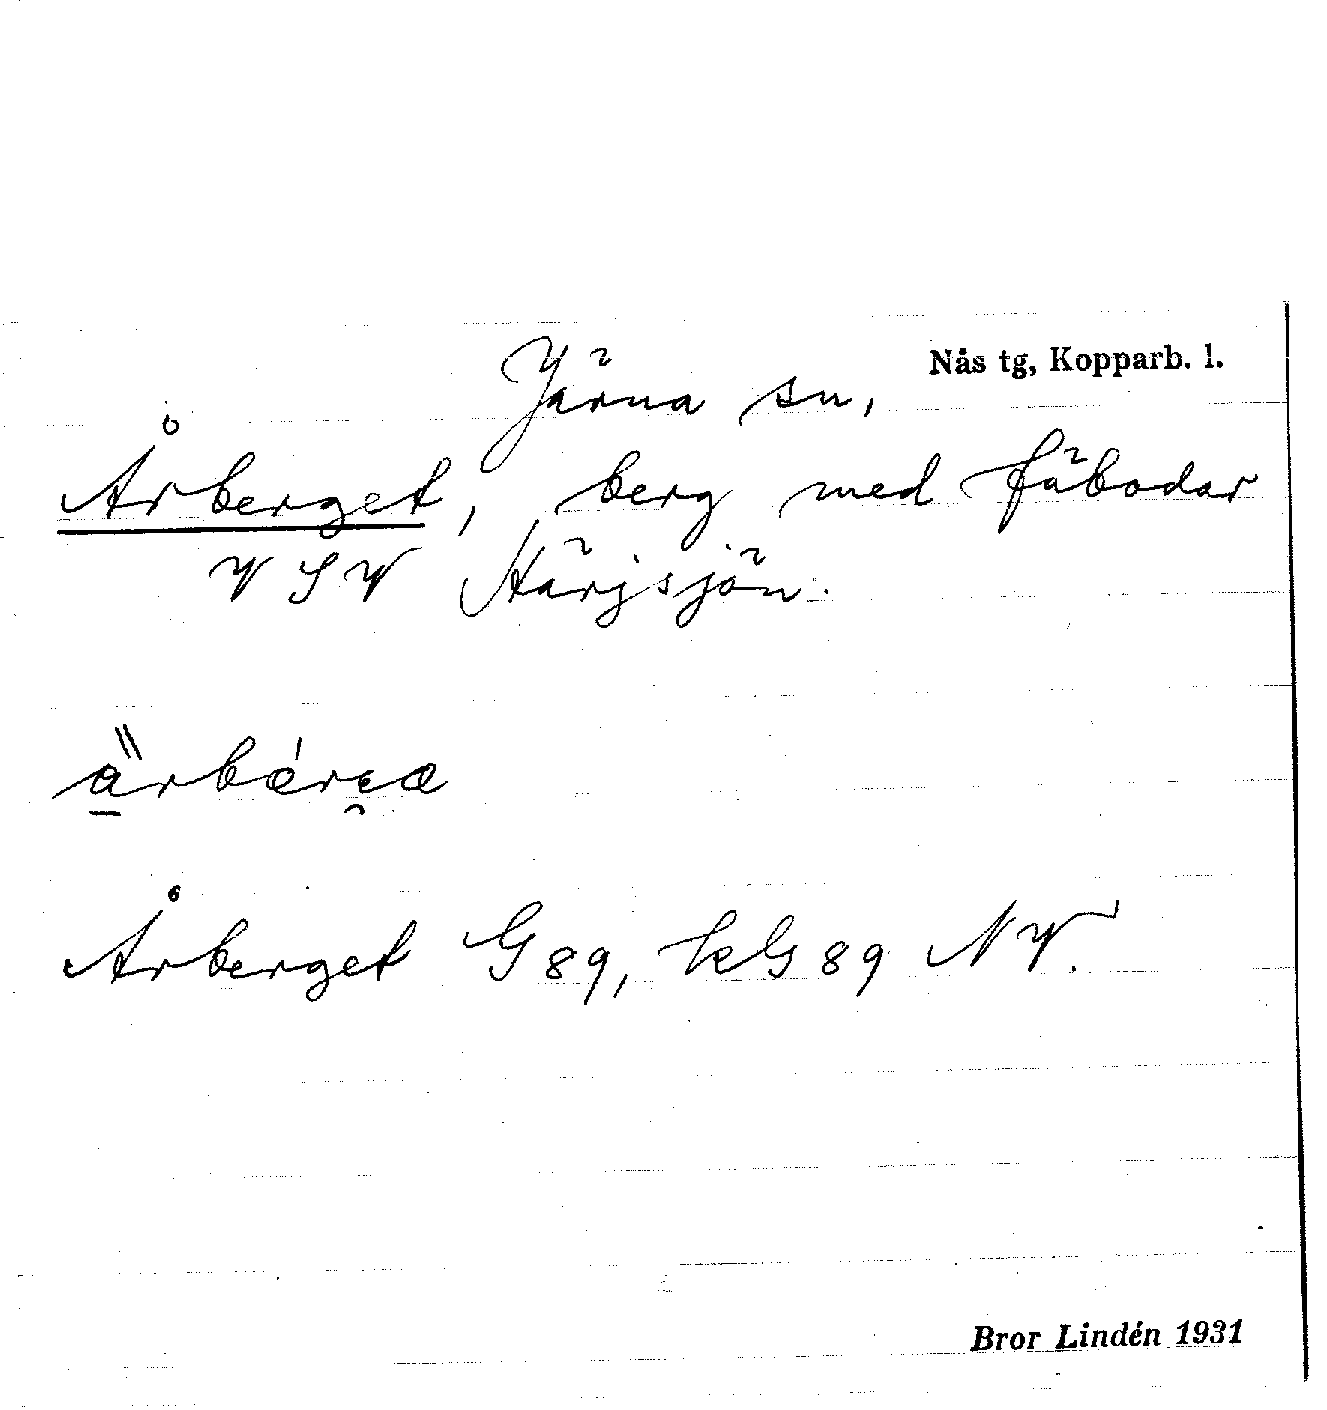 Nås tg, Kopparb. l.
Järna sn,
Årberget, berg med fäbodar
VSV Härjsjön.
Årberget G89, kG89 NV.
Bror Lindén 1931